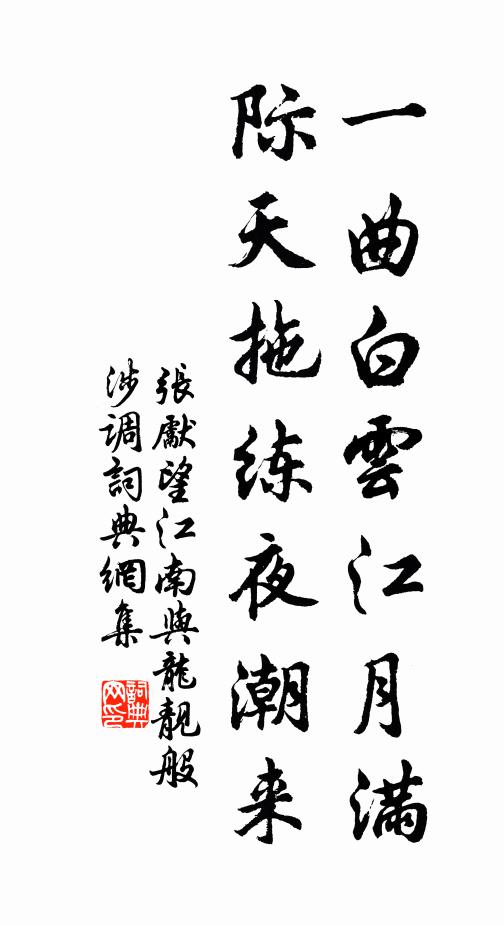 一曲白雲江月滿
际天拖练夜潮来
張獻望江南與龍靚般
涉调詞典網集
詞典
网印